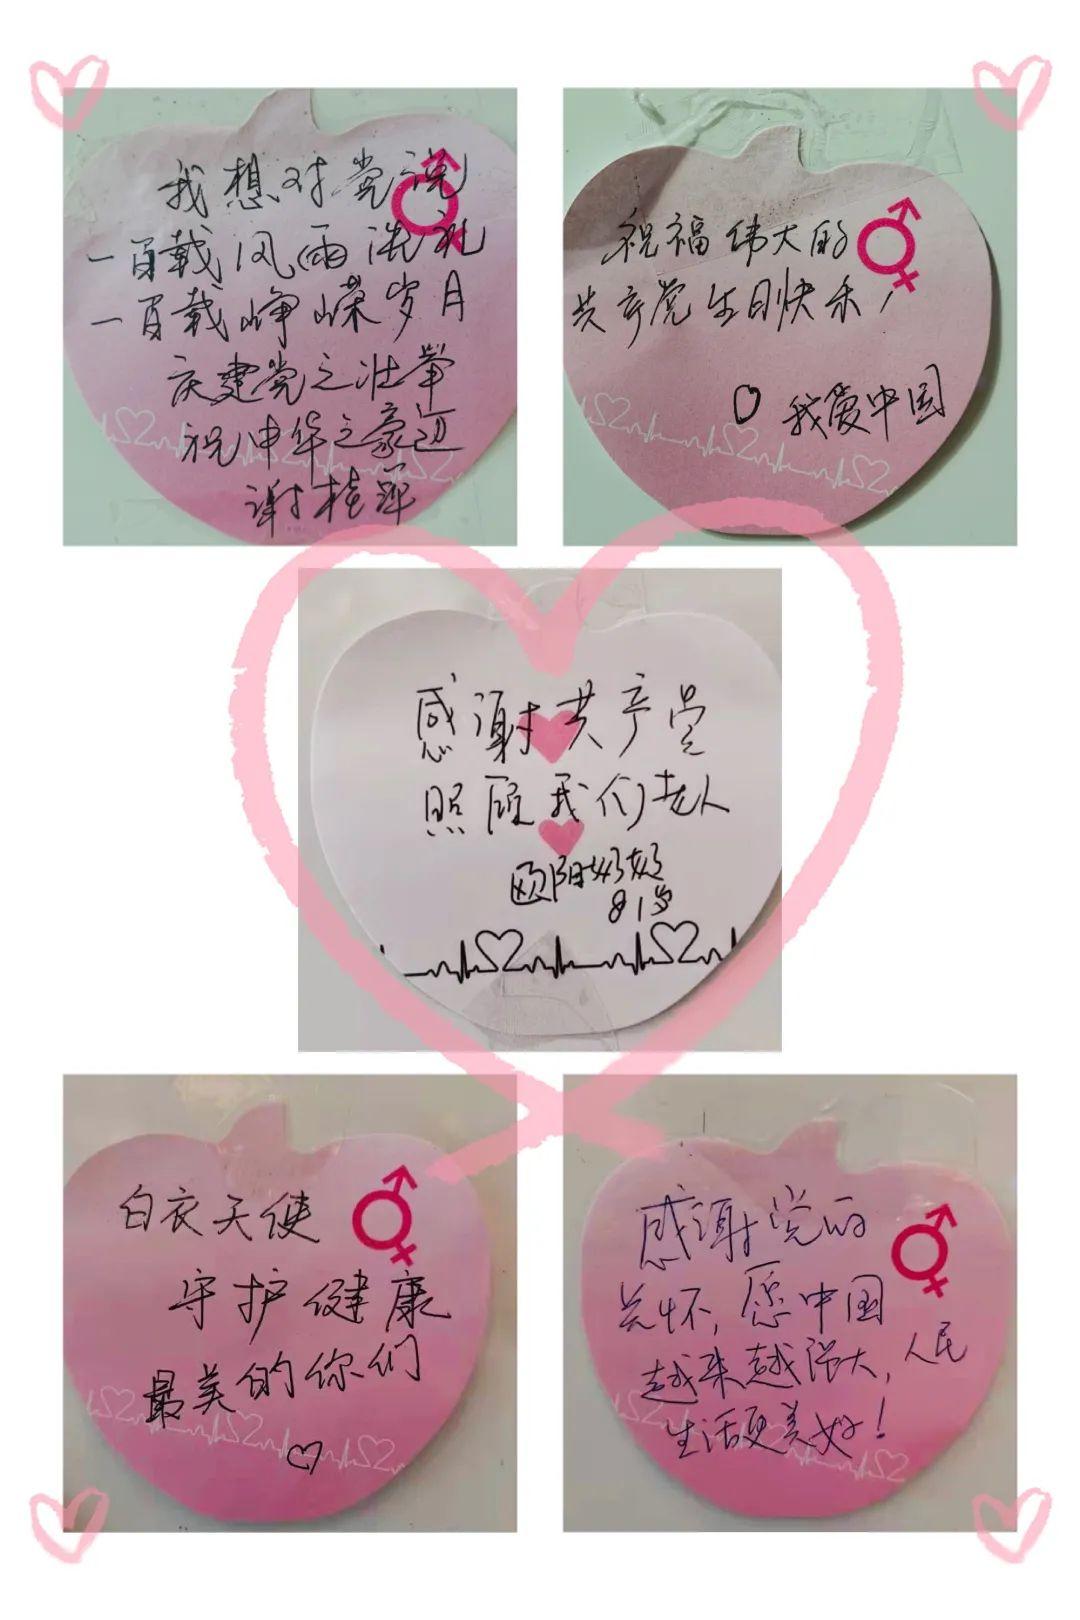 我想对党说
一百载风雨洗礼
一百载峥嵘岁月
庆建党之壮举
祝中华之豪迈
谢桂
祝福伟大的
共产党生日快乐！
我爱中国
感谢共产党
照顾我们老人
欧阳奶奶
81岁
白衣天使
守护健康
最美的你们
感谢党的
关怀，愿中国
越来越强大，人民
生活更美好！